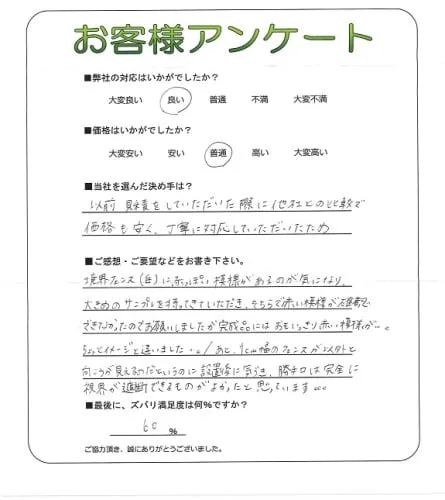 お客様アンケート
■弊社の対応はいかがでしたか?
大変良い 良い 普通 不満 大変不満
■価格はいかがでしたか?
大変安い 安い 普通 高い 大変高い
■当社を選んだ決め手は?
以前 見積をしていただいた際に他社との比較で
価格も安く、丁寧に対応していただいたため
■ご感想・ご要望などをお書き下さい。
境界フェンス(白)に赤っぽい模様があるのが気になり、
大きめのサンプルを持ってきていただき、そちらで赤い模様が確認
できなかったのでお願いしましたが完成品にはおもいっきり赤い模様が…。
ちょっとイメージと違いました…。/あと、1cm幅のフェンスが以外と
向こうが見えるのだというのに設置後に気づき、勝手口は完全に
視界が遮断できるものがよかったと思っています…。
■最後に、ズバリ満足度は何%ですか?
60 %
ご協力頂き、誠にありがとうございました。